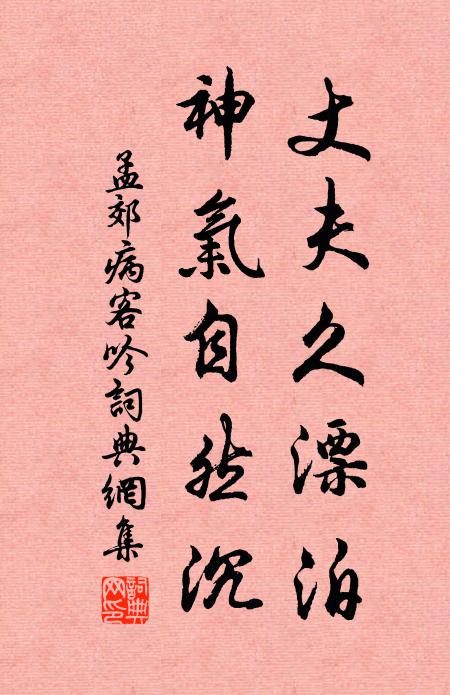 丈夫久漂泊
神氣自然沉
孟郊病客吟詞典網集
詞典網印